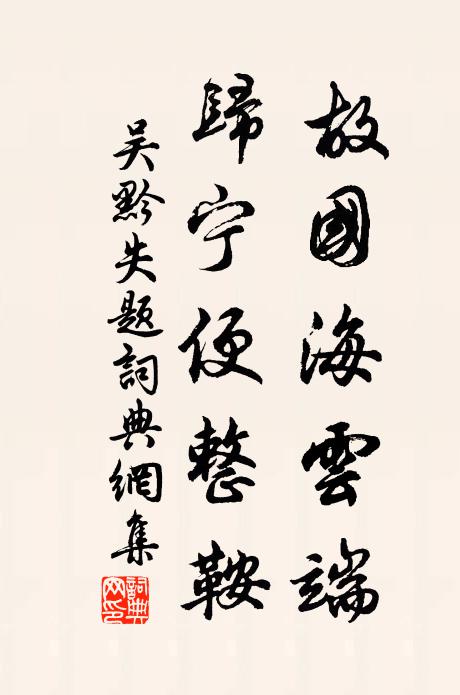 故國海雲端
歸宁便整鞍
吴黔失题詞典網集
詞典網印